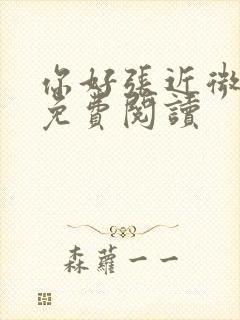 你好張近微
免費閱讀
森蘿一一